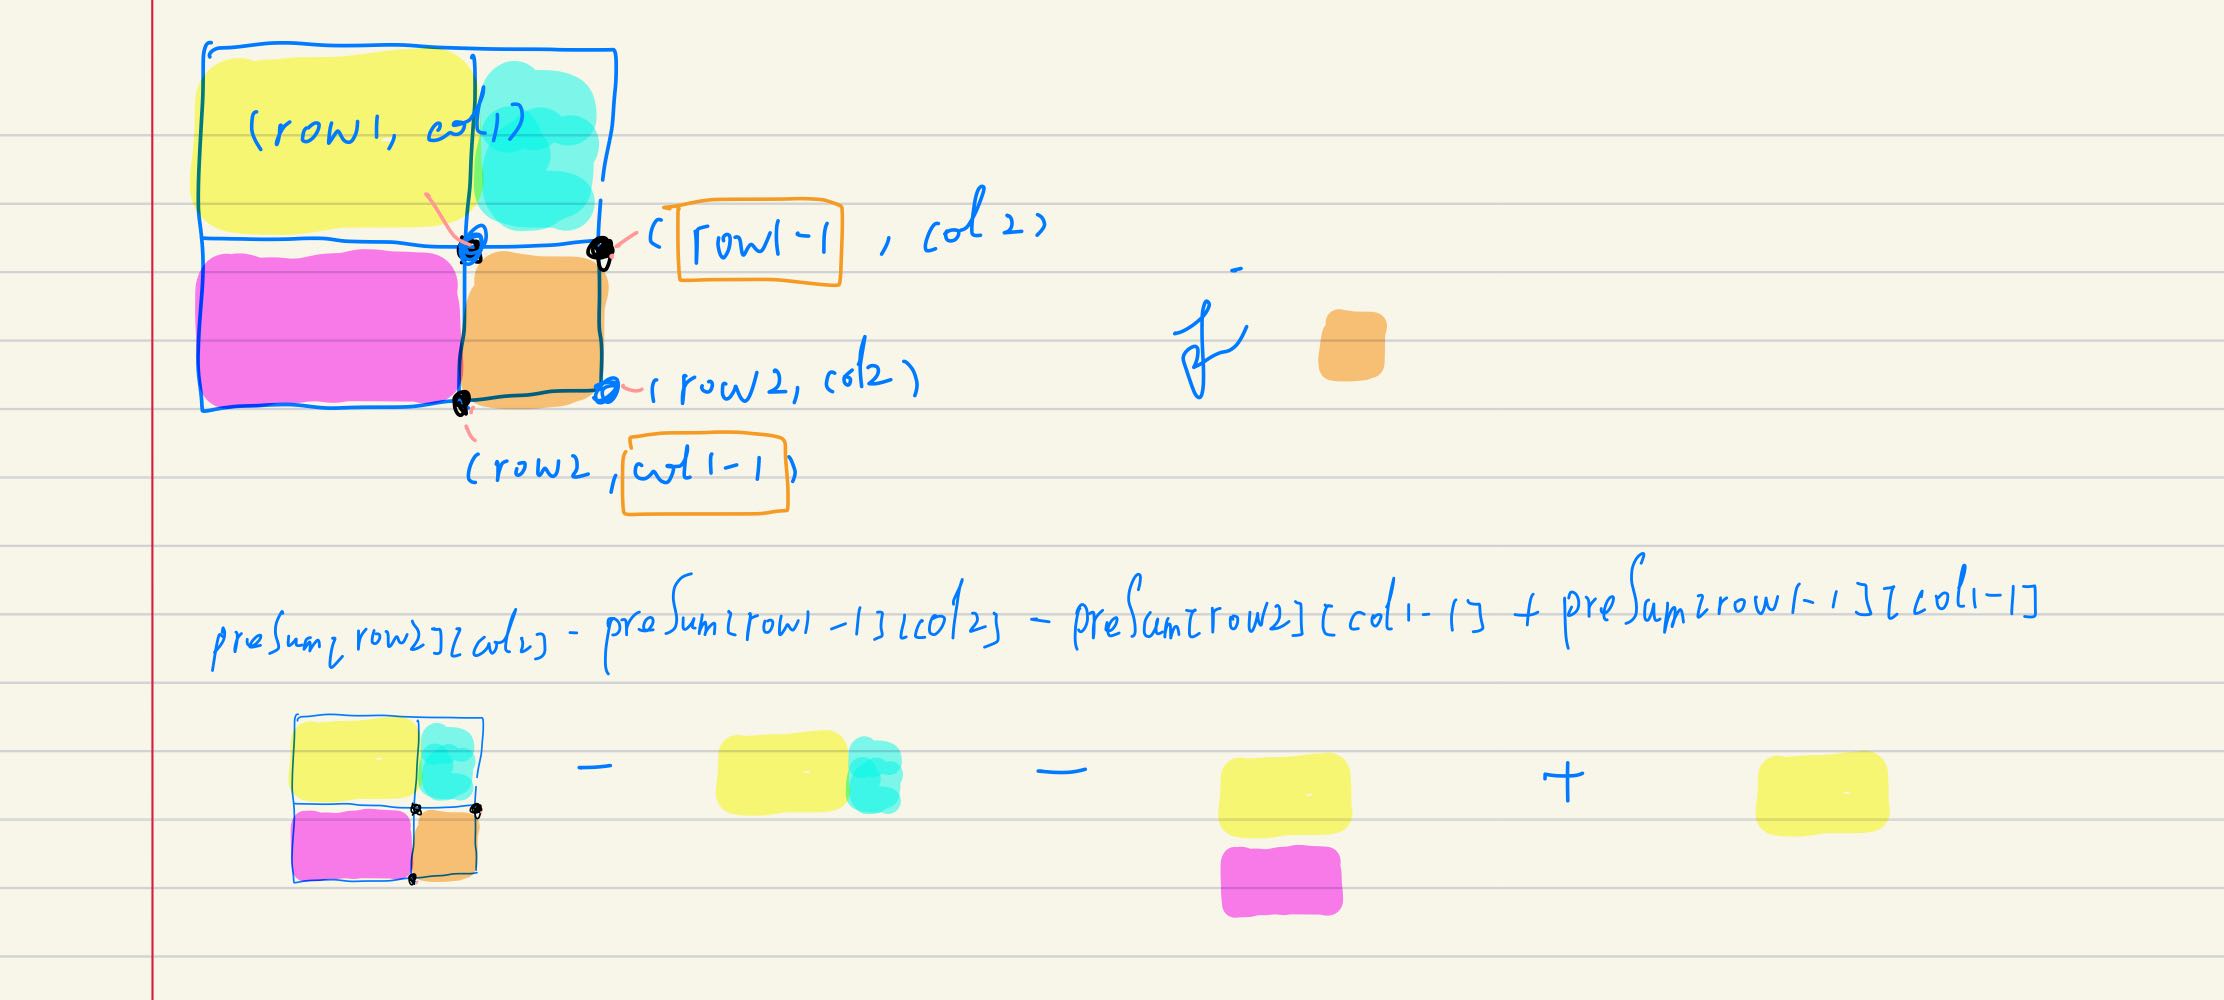 (row1, col1)
(row1-1, col2)
(row2, col2)
(row2, col1-1)
preSum[row2][col2] - preSum[row1-1][col2] - preSum[row2][col1-1] + preSum[row1-1][col1-1]
- - +